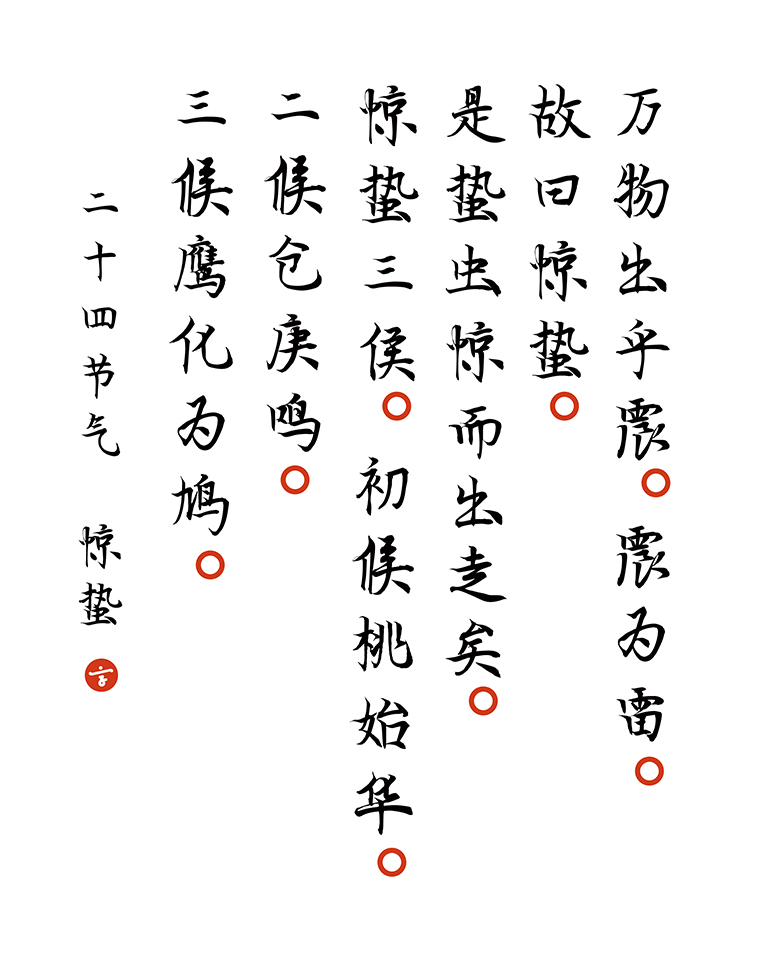 万物出乎震。震为雷。
故曰惊蛰。
是蛰虫惊而出走矣。
惊蛰三侯。初候桃始华。
二候仓庚鸣。
三候鹰化为鸠。
二十四节气 惊蛰
言